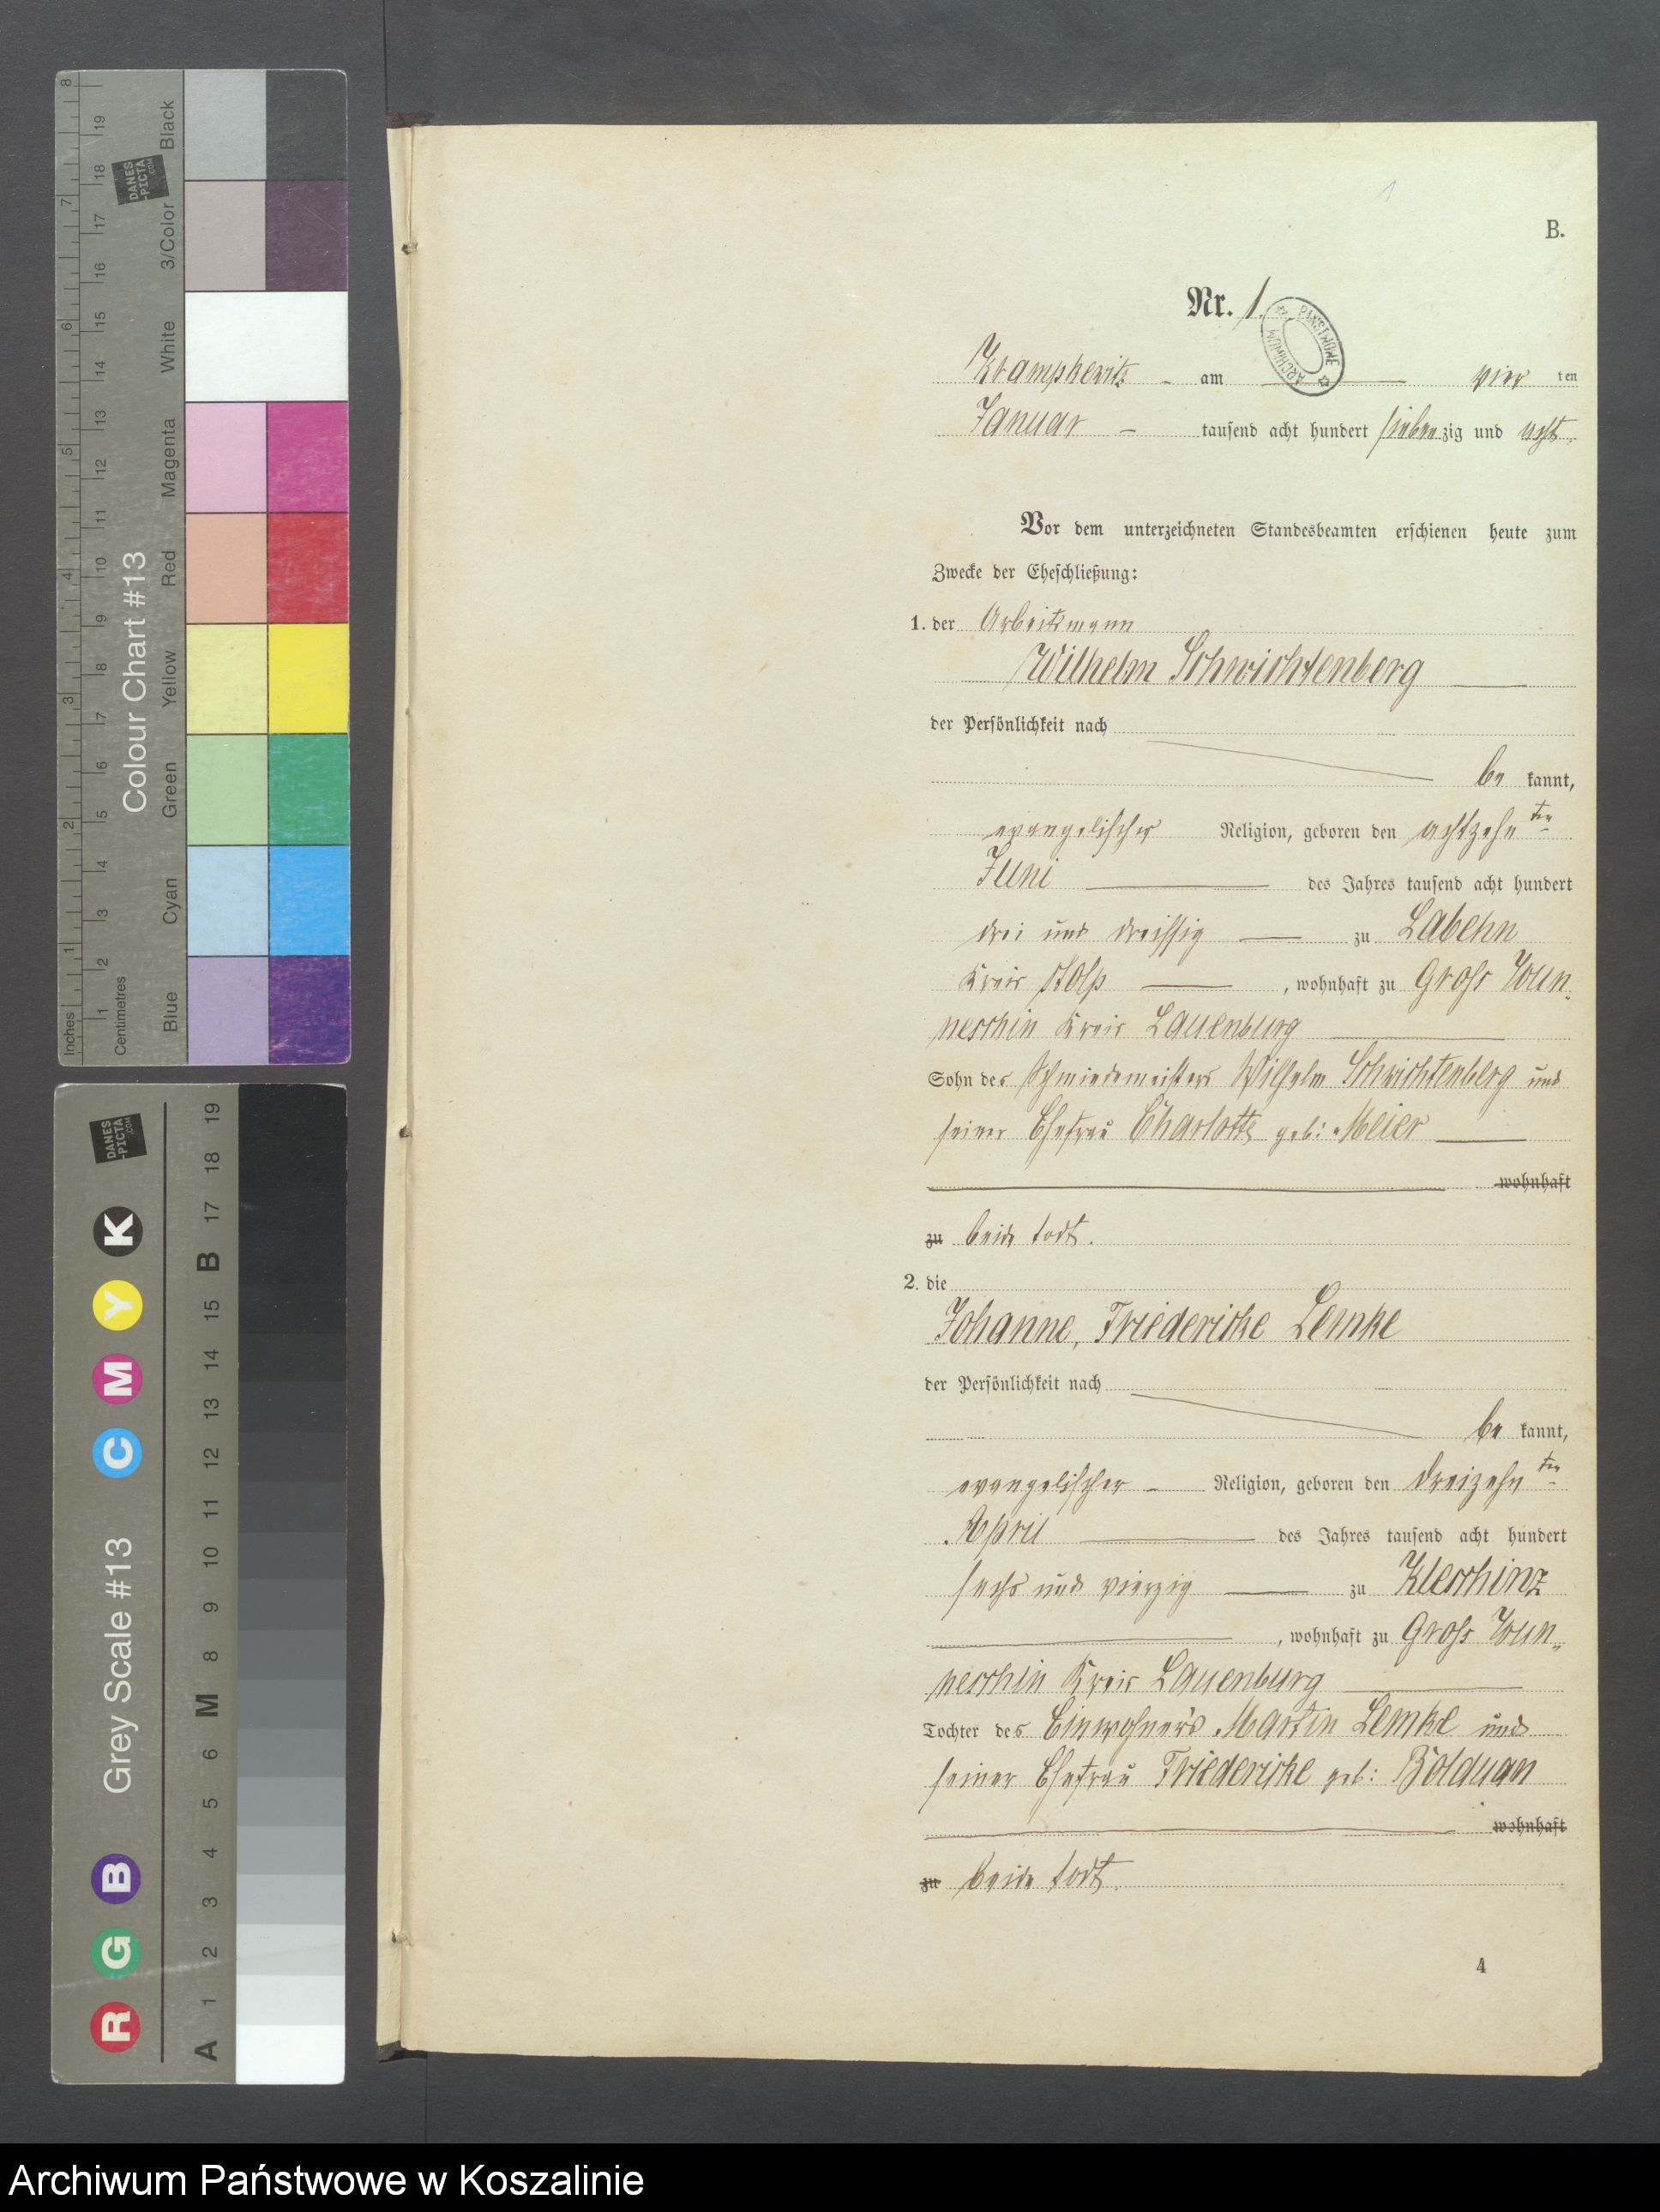 B.
Nr. 1.
ARCHIWUM PAŃSTWOWE
Krampkewitz am vier ten
Januar tausend acht hundert siebenzig und acht.
Vor dem unterzeichneten Standesbeamten erschienen heute zum
Zwecke der Eheschließung:
1. der Arbeitsmann
Wilhelm Schwichtenberg
der Persönlichkeit nach
be kannt,
evangelischer Religion, geboren den achtzehn ten
Juni des Jahres tausend acht hundert
drei und dreissig zu Labehn
Kreis Stolp, wohnhaft zu Gross Wun-
neschin Kreis Lauenburg
Sohn des Schmiedemeisters Wilhelm Schwichtenberg und
seiner Ehefrau Charlotte geb: Meier
wohnhaft
zu beide todt.
2. die
Johanne, Friedericke Lemke
der Persönlichkeit nach
be kannt,
evangelischer Religion, geboren den dreizehn ten
April des Jahres tausend acht hundert
sechs und vierzig zu Kleschinz
, wohnhaft zu Gross Wun-
neschin Kreis Lauenburg
Tochter des Einwohners Martin Lemke und
seiner Ehefrau Friedericke geb: Bolduan
wohnhaft
zu beide todt.
4
Colour Chart #13
Inches 1 2 3 4 5 6 7 8
Centimetres 1 2 3 4 5 6 7 8 9 10 11 12 13 14 15 16 17 18 19
Blue Cyan Green Yellow Red Magenta White 3/Color Black
DANES-PICTA.COM
Grey Scale #13
R G B C M Y K
A 1 2 3 4 5 6 M 8 9 10 11 12 13 14 15 B 17 18 19
DANES-PICTA.COM
Archiwum Państwowe w Koszalinie